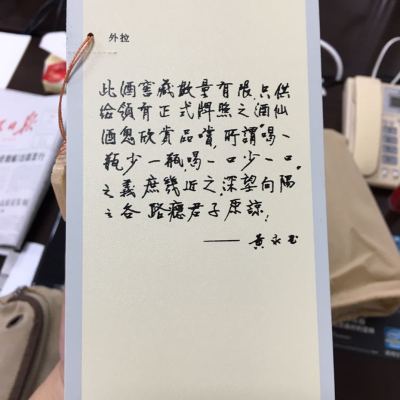 外拉
此酒窖藏数量有限只供
给領有正式牌照之酒仙
酒鬼欣賞品嚐，所謂"喝一
瓶少一瓶，喝一口少一口。
之義庶幾近之，深望向隅
之各路癮君子原諒。
—— 黄永玉
日报